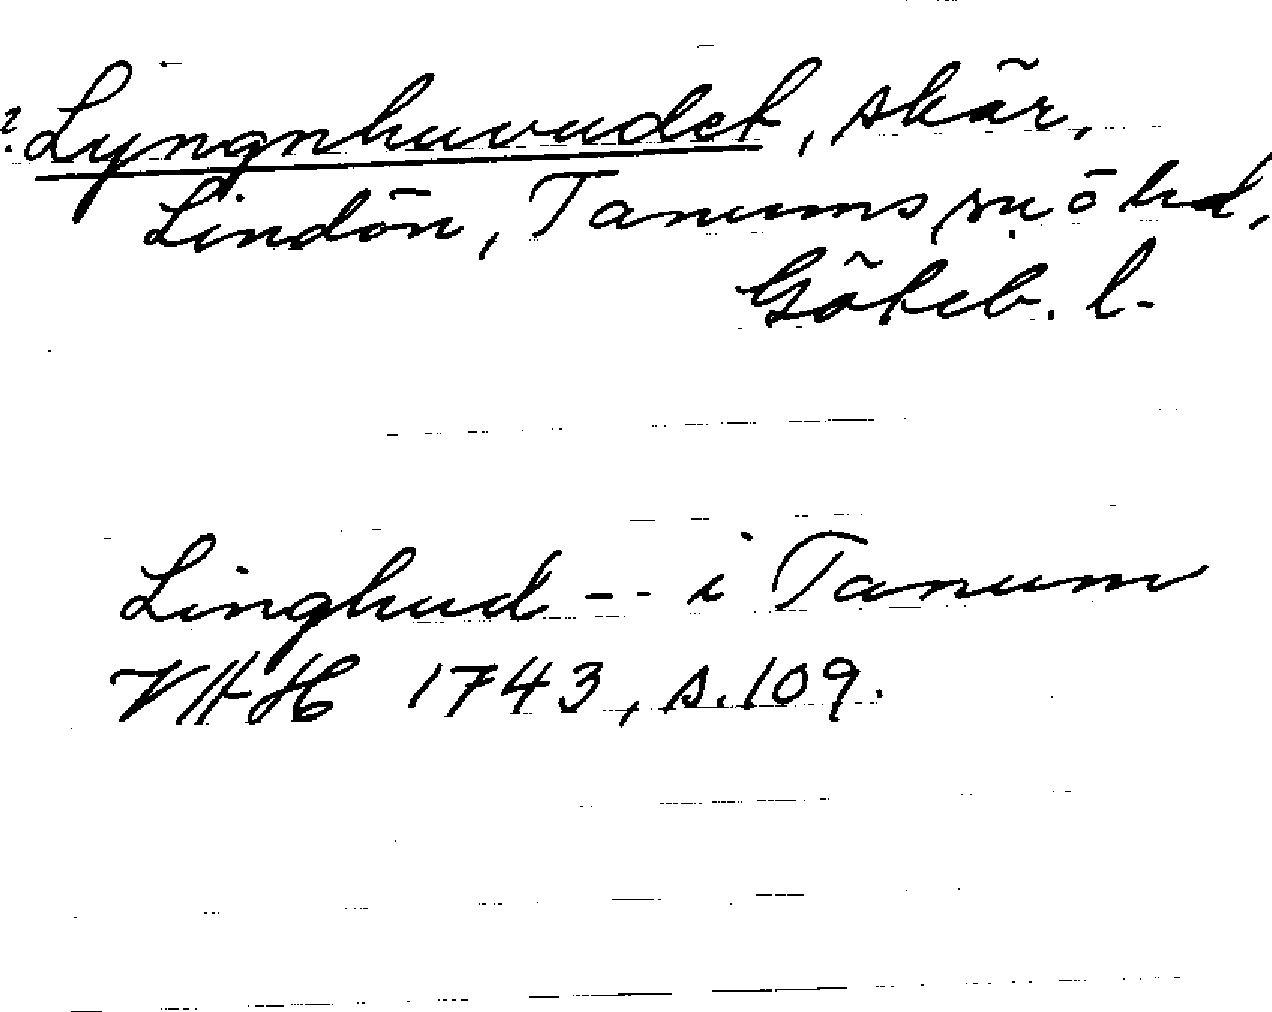 ? Lyngnhuvudet, skär,
Lindön, Tanums sn o hd,
Göteb. l.
Linghud -- i Tanum
VHH 1743, s. 109.